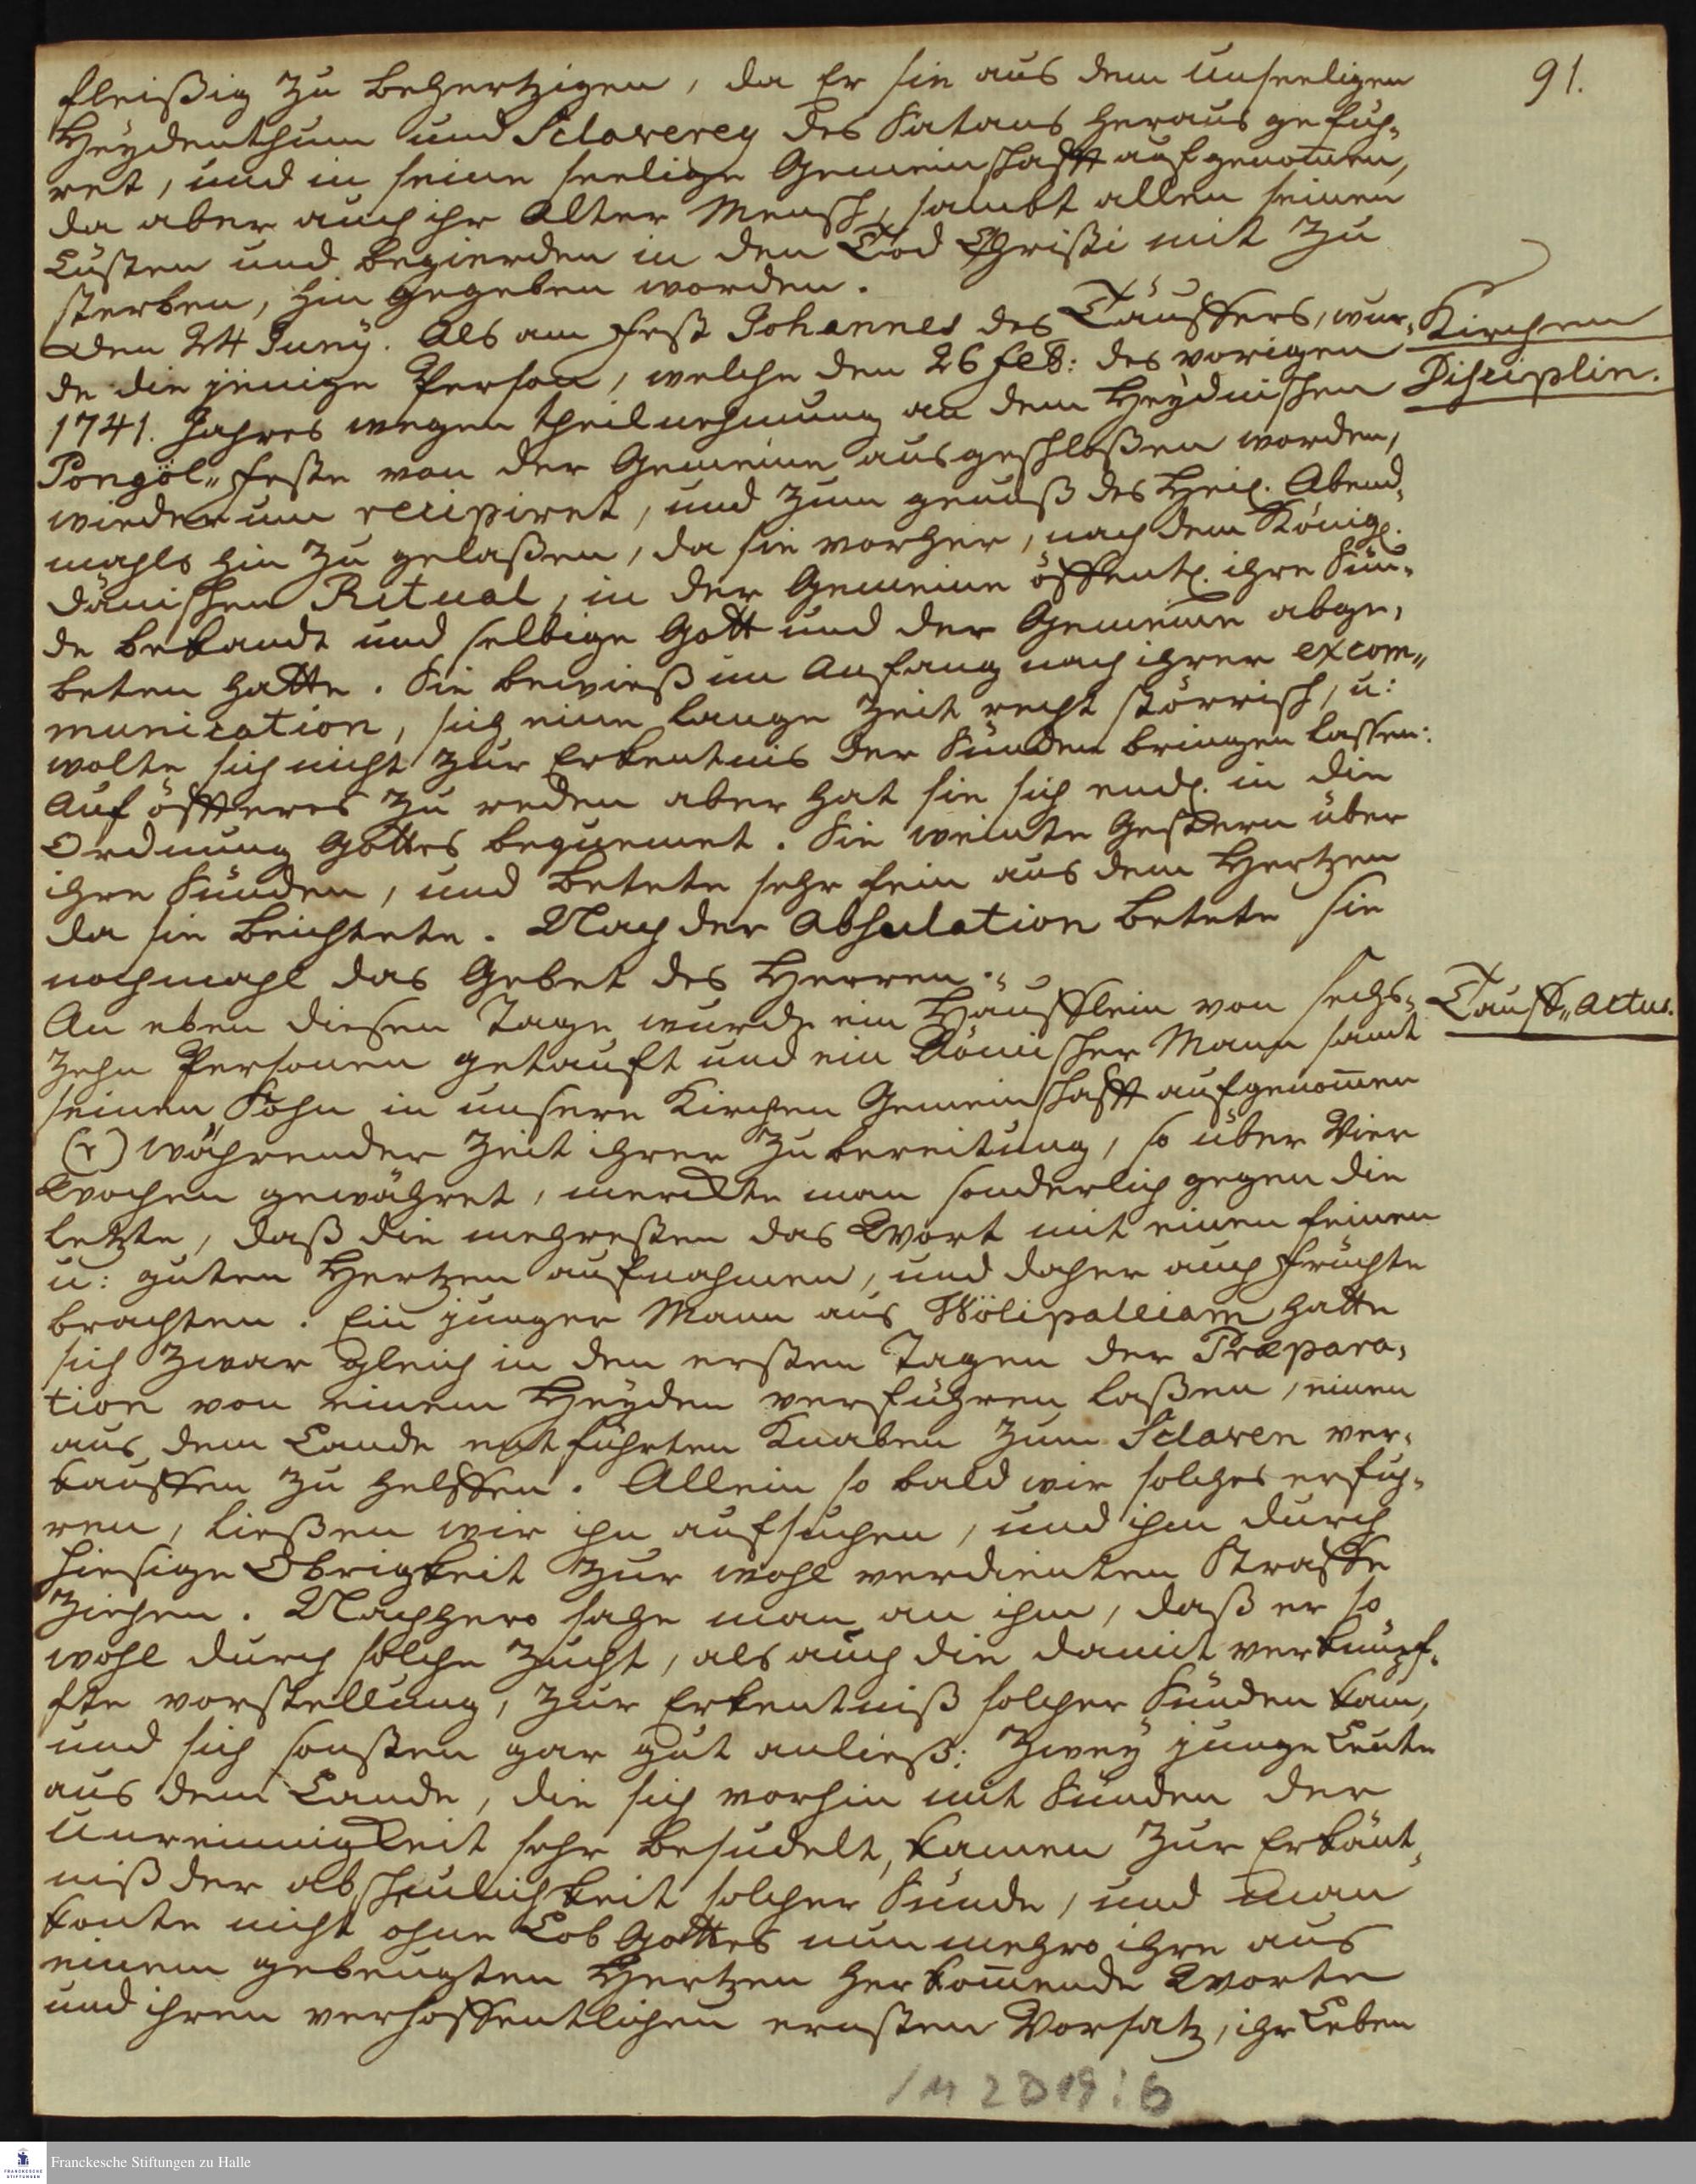 91.
fleißig zu behertzigen, da Er sie aus dem unseeligen
Heydenthum und Sclaverey des Satans heraus gefüh-
ret, und in seine seelige Gemeinschafft aufgenom̅en,
da aber auch ihr Alter Mensch, sambt allen seinen
Lüsten und begierden in den Tod Christi mit zu
sterben, hin gegeben worden.
Den 24 Juny. Als am Fest Johannes des Täuffers, wur-
Kirchen
de die jenige Person, welche den 26 Feb: des vorigen
Disciplin.
1741. Jahres wegen theilnehmung an dem Heydnischen
Pongöl-feste von der Gemeine ausgeschloßen worden,
wiederum recipiret, und zum genuß des Heil. Abend-
mahls hin zu gelaßen, da sie vorher, nach dem Königl.
dänischen Ritual, in der Gemeine öffentl. ihre Sün-
de bekandt und selbige Gott und der Gemeine abge-
beten hatte. Sie bewieß im Anfang nach ihrer excom-
munication, sich eine lange Zeit recht störrisch, u:
wolte sich nicht zur Erkentnis der Sünden bringen lassen:
Auf öffteres zu reden aber hat sie sich endl. in die
Ordnung Gottes bequemet. Sie weinte Gestern über
ihre Sünden, und betete sehr fein aus dem Hertzen
da sie beichtete. Nach der Absulation betete sie
nochmahl das Gebet des Herren.
An eben diesen Tage wurde ein Häufflein von sechs-
Tauff-Actus.
zehn Personen getauft und ein Römischer Mann samt
seinen Sohn in unsere Kirchen Gemeinschafft aufgenom̅en
(r) währender Zeit ihrer Zubereitung, so über Vier
Wochen gewähret, merckte man sonderlich gegen die
letzte, daß die mehresten das Wort mit einen feinen
u: guten Hertzen aufnahmen, und daher auch früchte
brachten. Ein junger Mann aus Wölipaleiam hatte
sich zwar gleich in den ersten Tagen der Præpara-
tion von einem Heyden verführen laßen, einen
aus dem Lande entführten Knaben zum Sclaven ver-
kauffen zu helffen. Allein so bald wir solches erfuh-
ren, ließen wir ihn aufsuchen, und ihm durch
hiesige Obrigkeit zur wohl verdienten Straffe
ziehen. Nachhero sahe man an ihm, daß er so
wohl durch solche Zucht, als auch die damit verknüpf-
fte vorstellung, zur Erkentniß solcher Sünden kam,
und sich sonsten gar gut anließ: Zwey junge Leute
aus dem Lande, die sich vorhin mit Sünden der
Unreinigkeit sehr besudelt, kamen zur Erkänt-
niß der abscheulichkeit solcher Sünde, und man
konte nicht ohne Lob Gottes nun mehro ihre aus
einem gebeugten Hertzen herkom̅ende Worte
und ihren verhoffentlichen ernsten Vorsatz, ihr Leben
1M 2D19:6
Franckesche Stiftungen zu Halle
FRANCKESCHE STIFTUNGEN